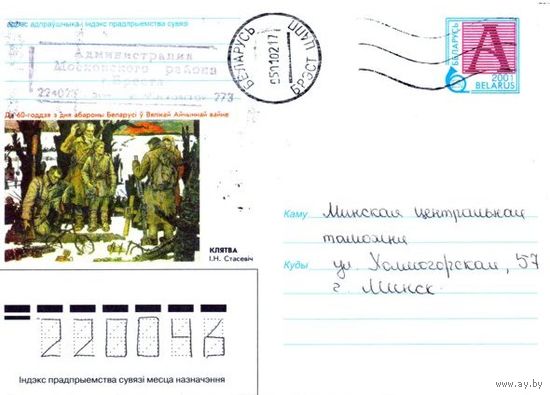 Адрас адпраўшчыка, індэкс прадпрыемства сувязі
Администрация
Московского района
г. Бреста
224023
773
Да 60-годдзя з дня абароны Беларусі ў Вялікай Айчыннай вайне
КЛЯТВА
І.Н. Стасевіч
БЕЛАРУСЬ
БРЭСТ
БЕЛАРУСЬ
A
2001
BELARUS
Каму Минская центральная
таможня
Куды ул. Холмогорская, 57
г. Минск
220046
Індэкс прадпрыемства сувязі месца назначэння
www.ay.by